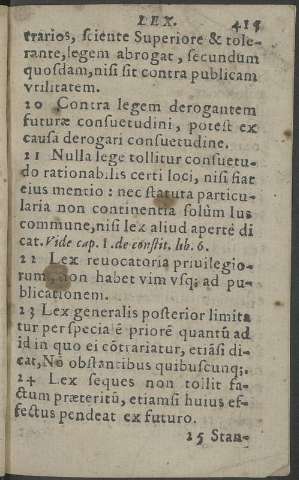 LEX. 415
trarios, sciente Superiore & tole-
rante, legem abrogat, secundum
quosdam, nisi sit contra publicam
vtilitatem.
20 Contra legem derogantem
futuræ consuetudini, potest ex
causa derogari consuetudine.
21 Nulla lege tollitur consuetu-
do rationabilis certi loci, nisi fiat
eius mentio: nec statuta particu-
laria non continentia solùm Ius
commune, nisi lex aliud apertè di
cat. Vide cap. 1. de constit. lib. 6.
22 Lex reuocatoria priuilegio-
rum, non habet vim vsq; ad pu-
blicationem.
23 Lex generalis posterior limita
tur per specialẽ priorẽ quantũ ad
id in quo ei cõtrariatur, etiãsi di-
cat, Nõ obstantibus quibuscunq;.
24 Lex sequẽs non tollit fa-
ctum præteritũ, etiamsi huius ef-
fectus pendeat ex futuro.
25 Stan-